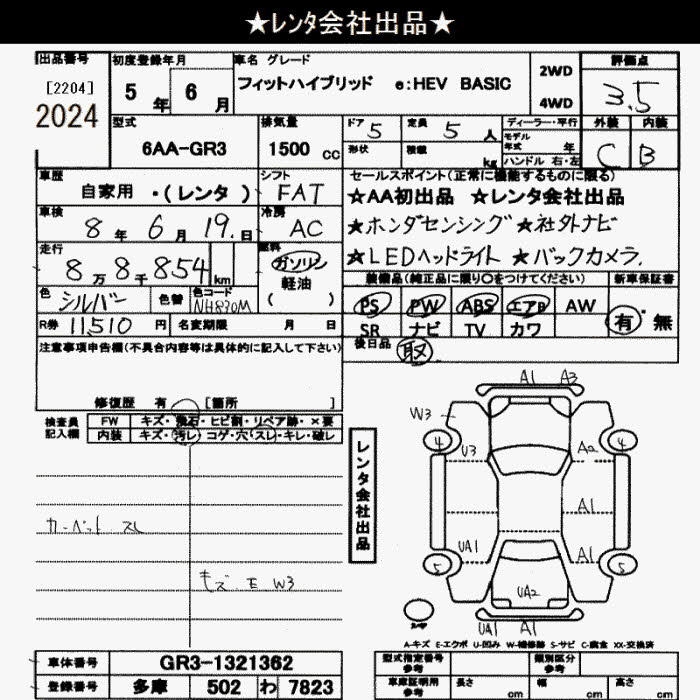 ★レンタ会社出品★
出品番号 [2204] 2024
初度登録年月 5 年 6 月
車名 グレード
フィットハイブリッド e:HEV BASIC
2WD
4WD
評価点 3.5
外装 内装
C B
型式 6AA-GR3
排気量 1500 cc
ドア 5 定員 5 人
形状 積載 kg
ディーラー・平行
モデル年式 年
ハンドル 右・左
車歴 自家用 ・(レンタ )
シフト FAT
セールスポイント(正常に機能するものに限る)
☆AA初出品 ☆レンタ会社出品
★ホンダセンシング★社外ナビ
★LEDヘッドライト ★バックカメラ.
車検 8 年 6 月 19.日
冷房 AC
走行 8 万 8 千 854 km
燃料 ガソリン 軽油 ( )
色 シルバー 色替 色コード NH830M
装備品(純正品に限り〇をつけてください) 新車保証書
PS PW ABS エアB AW 有・無
SR ナビ TV カワ
後日品 取
R券 11,510 円 名変期限 月 日
注意事項申告欄(不具合内容等は具体的に記入して下さい)
修復歴 有 [箇所 ]
検査員記入欄
FW キズ・飛石・ヒビ割・リペア跡・×要
内装 キズ・汚レ・コゲ・穴・スレ・キレ・破レ
カーペット スレ
キズ E W3
レンタ会社出品
A1 A3
W3
4 4
U3 A2
A1
UA1 A1
5 5
UA2
UA1 A1
A-キズ E-エクボ U-凹み W-補修跡 S-サビ C-腐食 XX-交換済
車体番号 GR3-1321362
登録番号 多摩 502 わ 7823
型式指定番号 参考 類別区分 参考
車庫証明用 参考 長さ cm 幅 cm 高さ cm